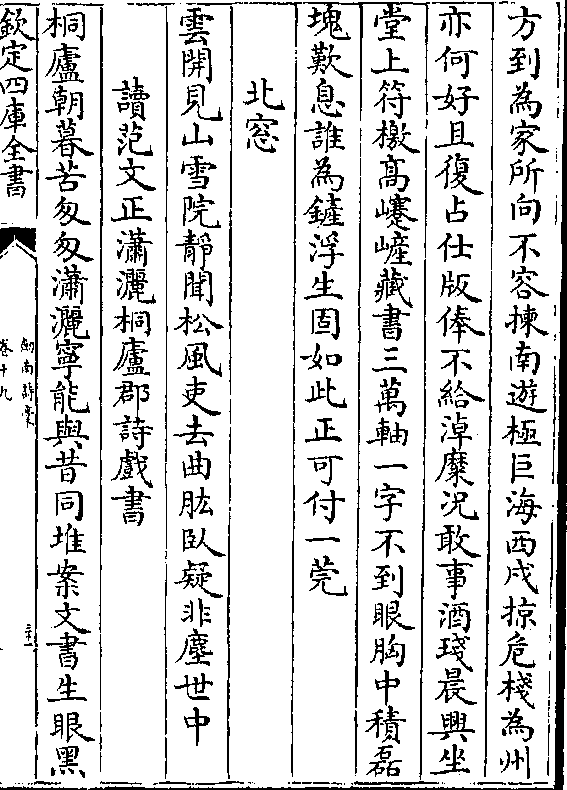 方到為家所向不容揀南遊極巨海西戍掠危棧為州
亦何好且復占仕版俸不給淖糜況敢事酒琖晨興坐
堂上符檄高巉嵼藏書三萬軸一字不到眼胸中積磊
塊歎息誰為鏟浮生固如此正可付一莞
北窓
雲開見山雪院靜聞松風吏去曲肱臥疑非塵世中
讀范文正瀟灑桐廬郡詩戲書
桐廬朝暮苦匆匆瀟灑寧能與昔同堆案文書生眼黑
欽定四庫全書
劍南詩稾
卷十九